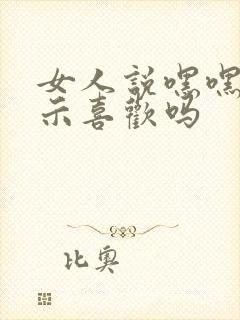 女人說嘿嘿
示喜歡嗎
比奧